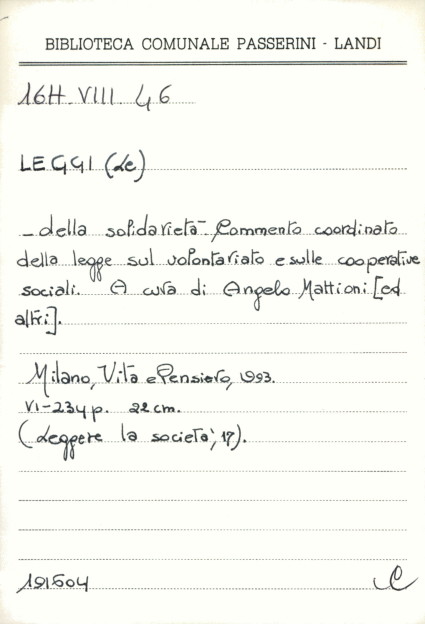 BIBLIOTECA COMUNALE PASSERINI - LANDI
16H.VIII.46
LEGGI (Le)
- della solidarietà - Commento coordinato
della legge sul volontariato e sulle cooperative
sociali. A cura di Angelo Mattioni [ed
altri].
Milano, Vita e Pensiero, 1993.
VI-234 p. 22 cm.
(Leggere la società, 17).
191504 C